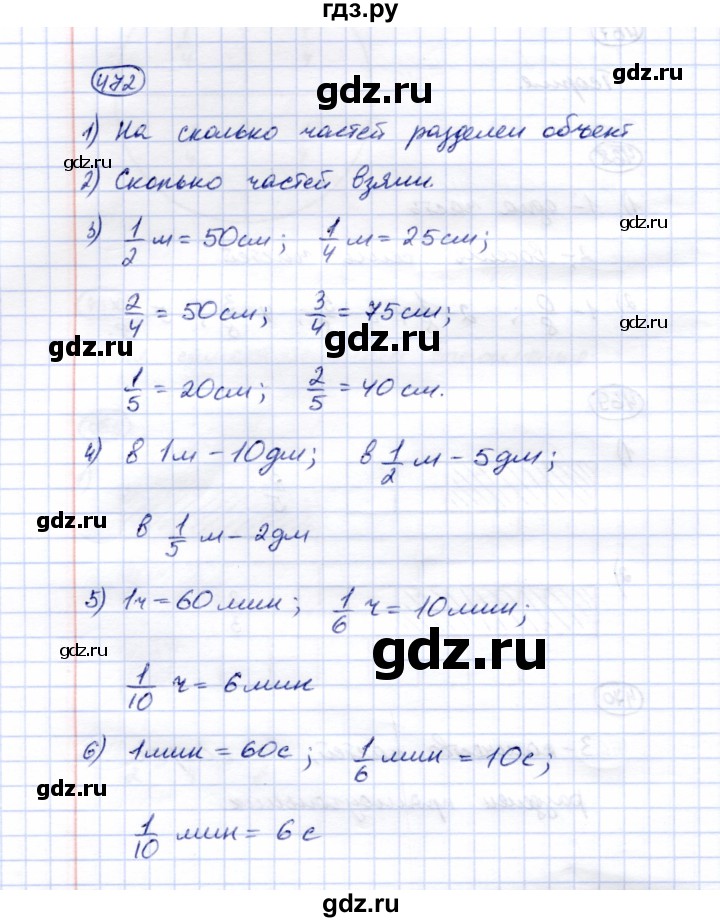 гдз.ру
472
1) На сколько частей разделен объект
2) Сколько частей взяли.
3) 1/2 м = 50см; 1/4 м = 25см;
2/4 = 50см; 3/4 = 75см;
1/5 = 20см; 2/5 = 40см.
4) в 1м - 10дм; в 1/2 м - 5дм;
в 1/5 м - 2дм
5) 1ч = 60мин; 1/6 ч = 10мин;
1/10 ч = 6мин
6) 1мин = 60с; 1/6 мин = 10с;
1/10 мин = 6с
gdz.ru
gdz.ru
gdz.ru
gdz.ru
gdz.ru
gdz.ru
gdz.ru
gdz.ru
gdz.ru
gdz.ru
gdz.ru
gdz.ru
gdz.ru
gdz.ru